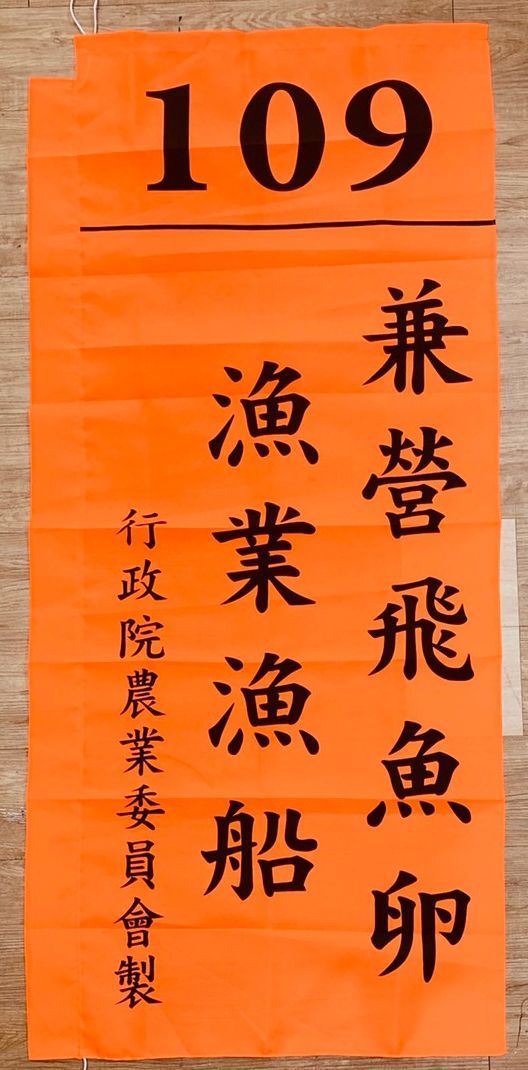 109
兼營飛魚卵
漁業漁船
行政院農業委員會製